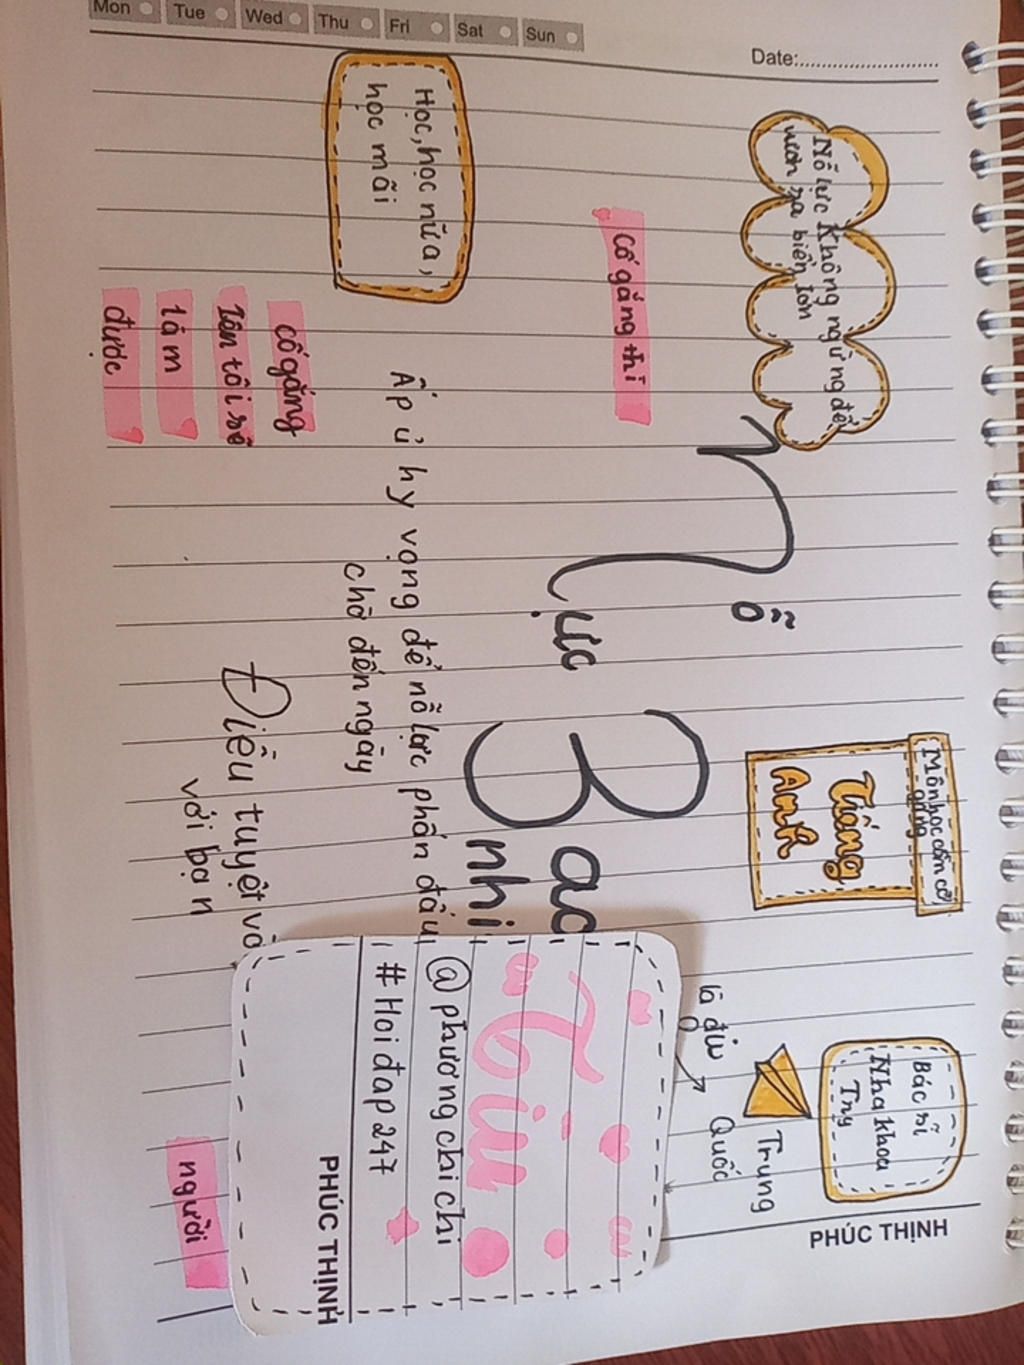 Mon Tue Wed Thu Fri Sat Sun
Date:
Nỗ lực Không ngừng để
vươn ra biển lớn
Môn học cầm cờ
Tiếng
Anh
Bác sĩ
Nha khoa
Try
PHÚC THỊNH
Trung
Quốc
là địu
nỗ
lực
Bao
nhi
cố gắng thì
Học, học nữa,
học mãi
Ấp ủ hy vọng để nỗ lực phấn đấu
chờ đến ngày
cố gắng
lên tôi sẽ
làm
được
Điều tuyệt vờ
với bạn
người
Tiu
@phương chi chi
#Hoiđap247
PHÚC THỊNH